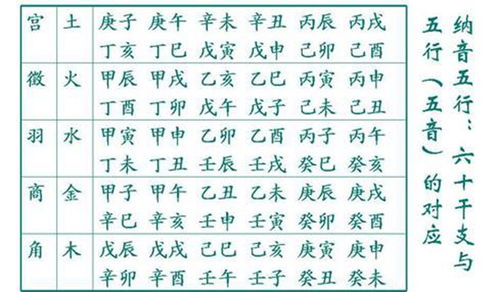 纳音五行：六十干支与
五行（五音）的对应
宫 土 庚子 庚午 辛未 辛丑 丙辰 丙戌
丁亥 丁巳 戊寅 戊申 己卯 己酉
徵 火 甲辰 甲戌 乙亥 乙巳 丙寅 丙申
丁酉 丁卯 戊午 戊子 己未 己丑
羽 水 甲寅 甲申 乙卯 乙酉 丙子 丙午
丁未 丁丑 壬辰 壬戌 癸巳 癸亥
商 金 甲子 甲午 乙丑 乙未 庚辰 庚戌
辛巳 辛亥 壬申 壬寅 癸卯 癸酉
角 木 戊辰 戊戌 己巳 己亥 庚寅 庚申
辛卯 辛酉 壬午 壬子 癸丑 癸未